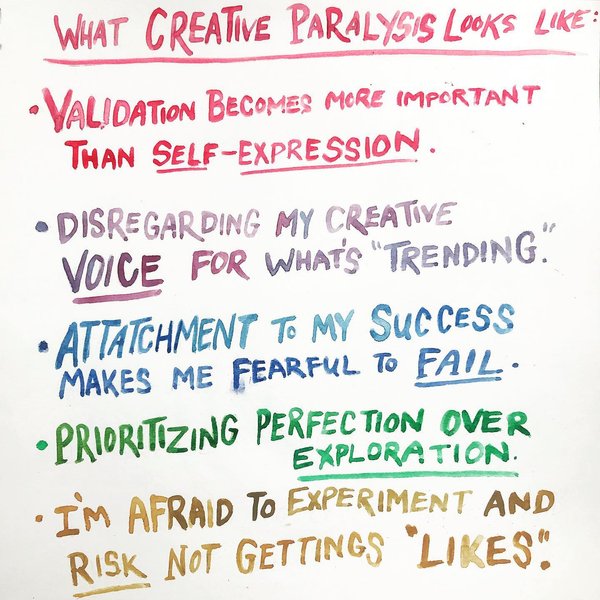 WHAT CREATIVE PARALYSIS LOOKS LIKE:
• VALIDATION BECOMES MORE IMPORTANT
THAN SELF-EXPRESSION.
• DISREGARDING MY CREATIVE
VOICE FOR WHAT'S "TRENDING."
• ATTATCHMENT TO MY SUCCESS
MAKES ME FEARFUL TO FAIL.
• PRIORITIZING PERFECTION OVER
EXPLORATION.
• I'M AFRAID TO EXPERIMENT AND
RISK NOT GETTINGS "LIKES".